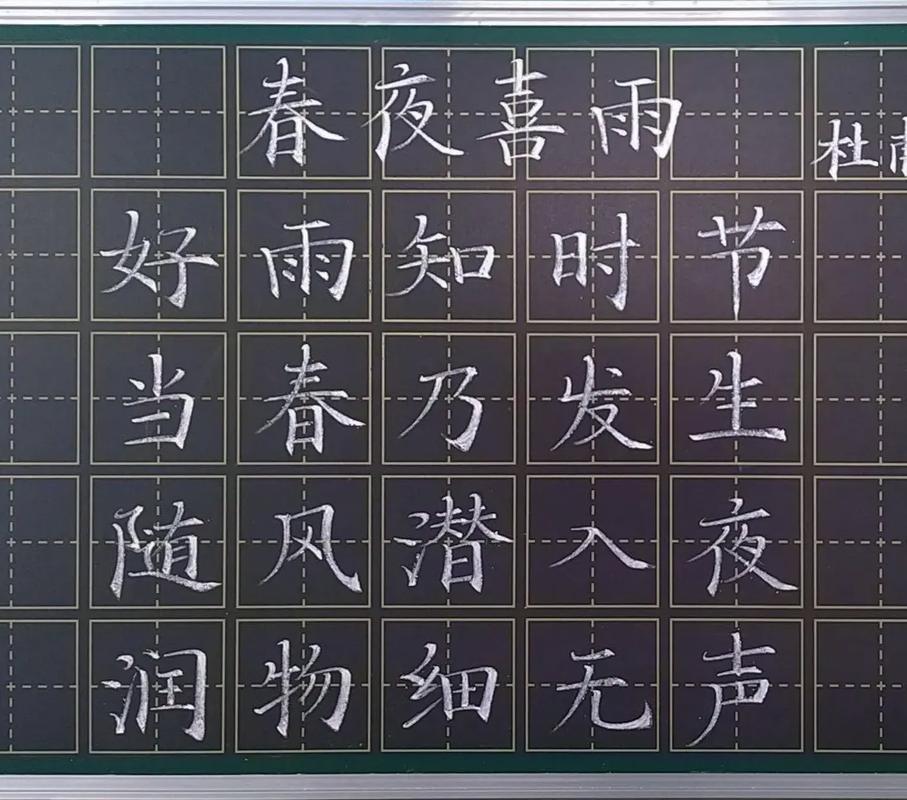 春夜喜雨
杜甫
好雨知时节
当春乃发生
随风潜入夜
润物细无声